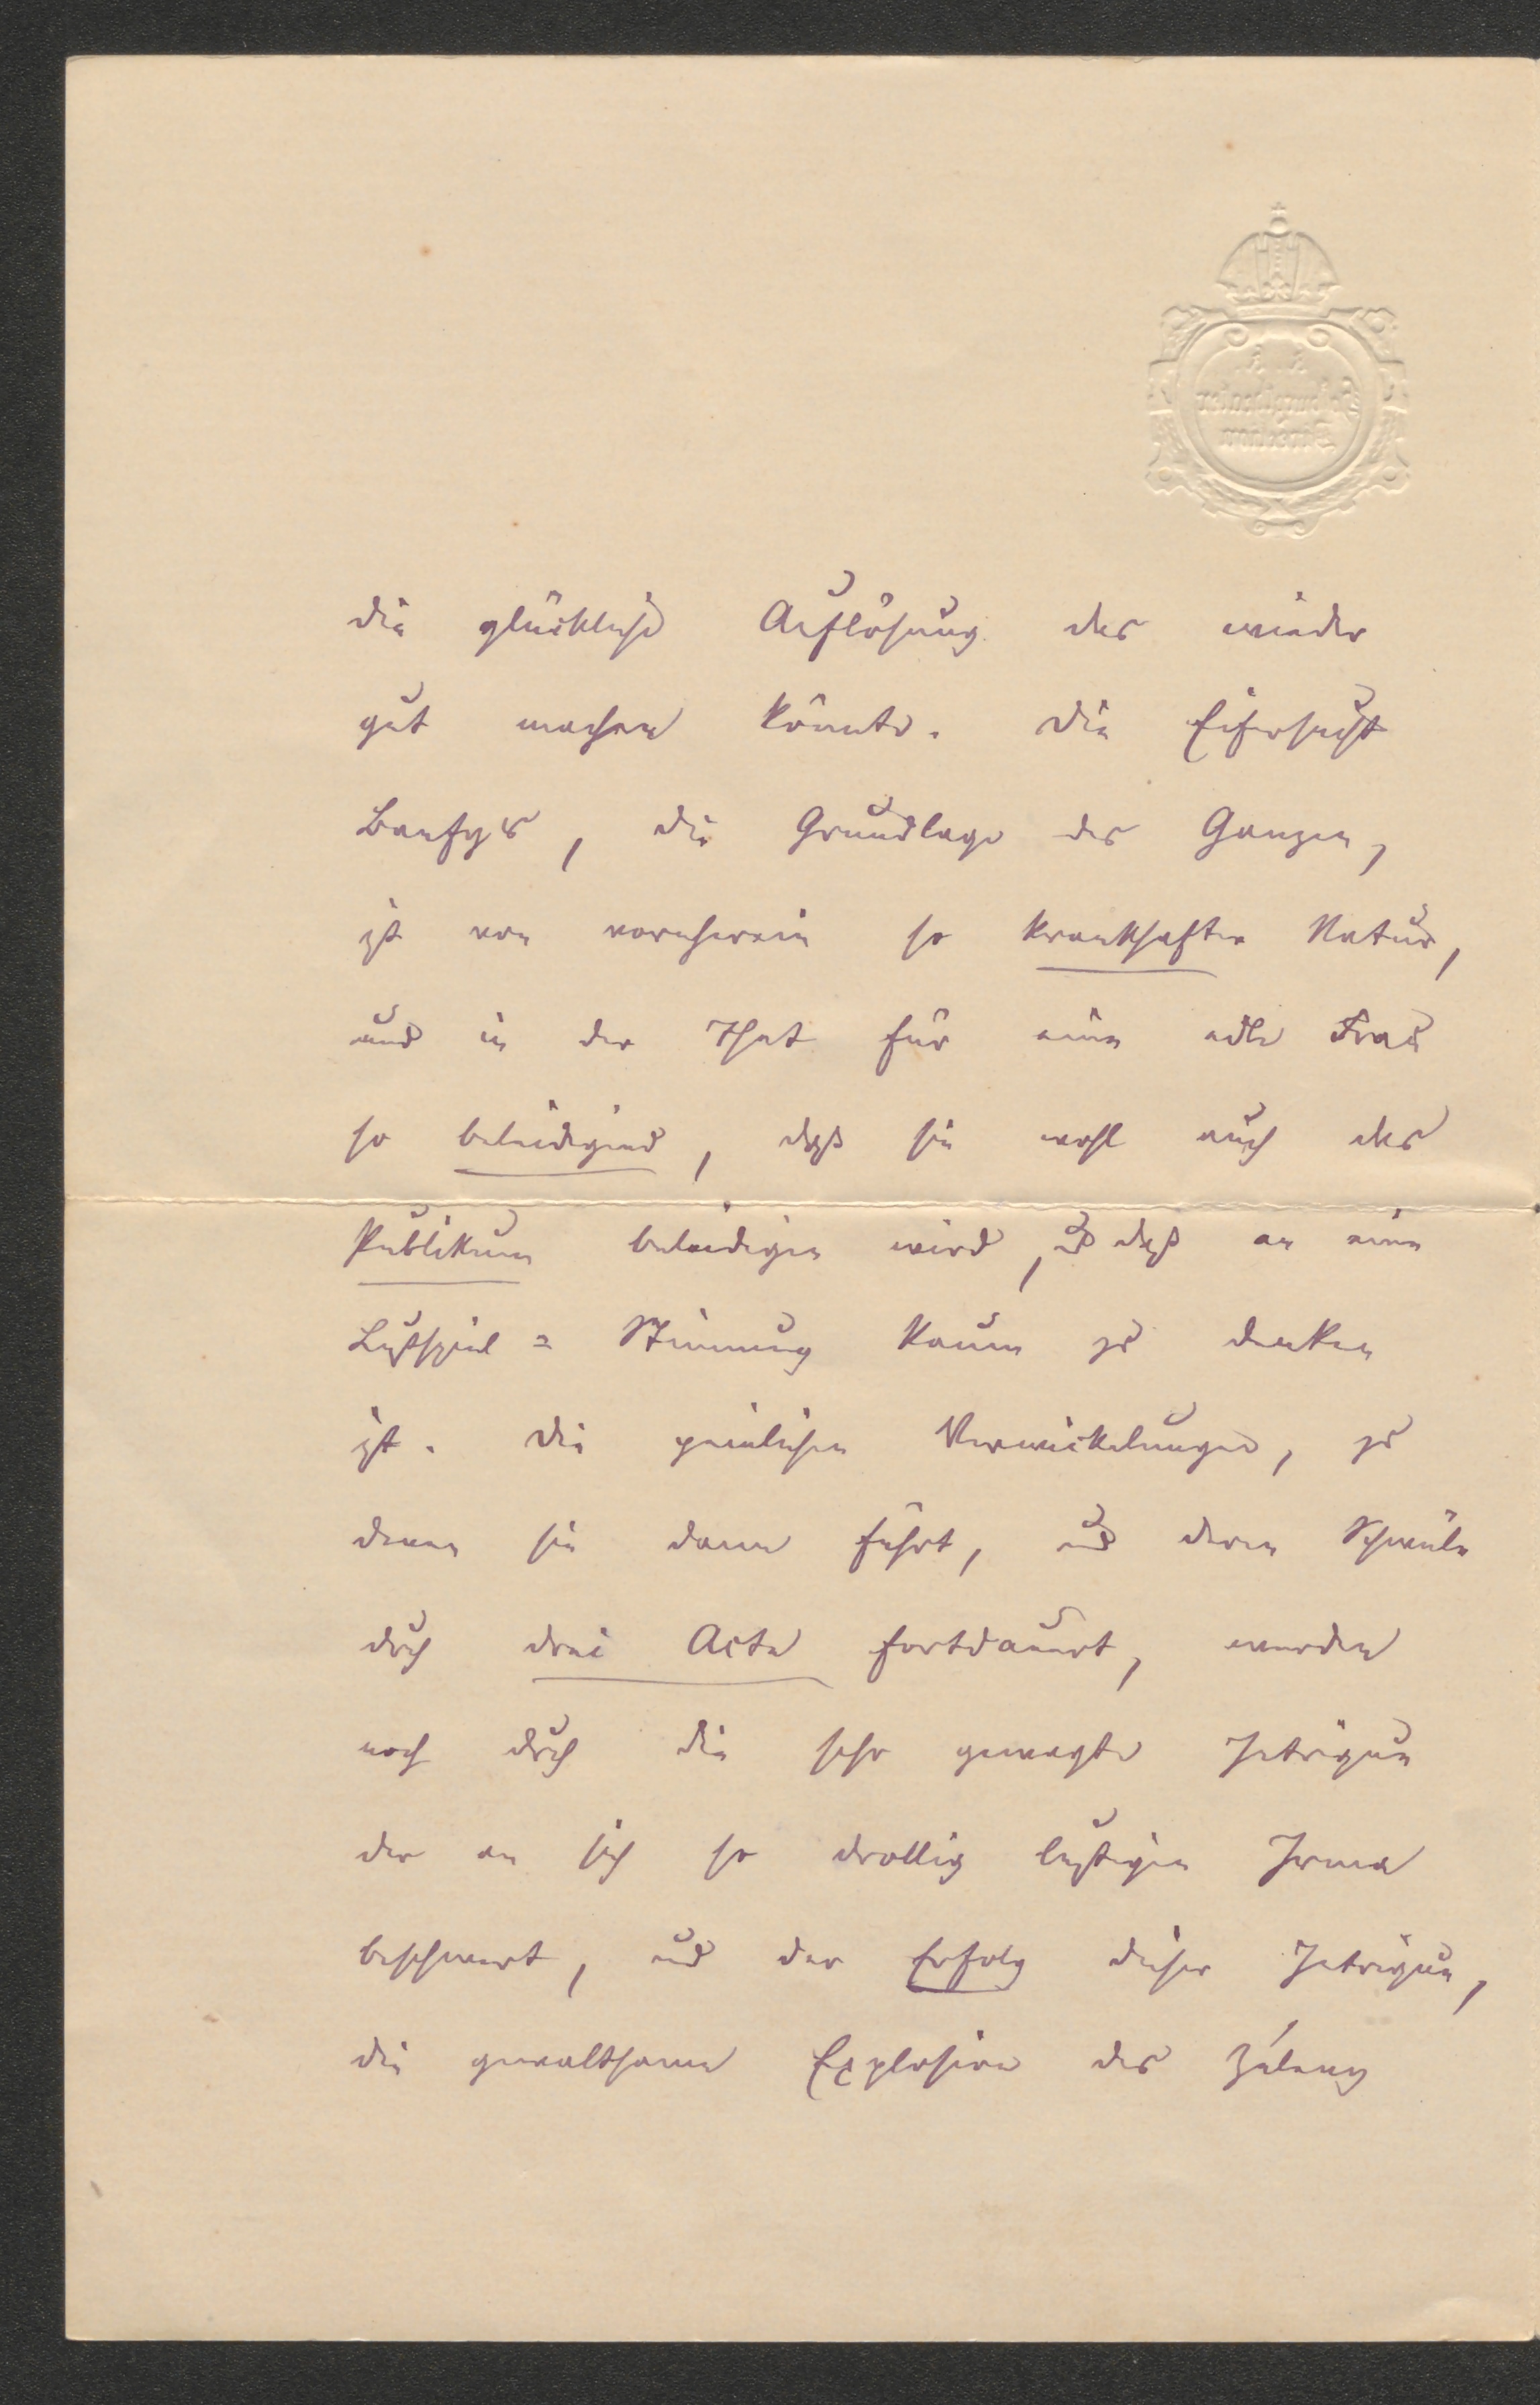 K. K.
Hofburgtheater
Direction
die glückliche Auflösung das wieder
gut machen könnte. Die Eifersucht
Banfys, die Grundlage des Ganzen,
ist von vornherein so krankhafter Natur,
und in der That für eine edle Frau
so beleidigend, daß sie wohl auch das
Publikum beleidigen wird, und daß an eine
Lustspiel=Stimmung kaum zu denken
ist. Die peinlichen Verwickelungen, zu
denen sie dann führt, und deren Schwüle
durch drei Acte fortdauert, werden
noch durch die sehr gewagte Intrigue
der an sich so drollig lustigen Irma
beschwert, und der Erfolg dieser Intrigue,
die gewaltsame Explosion des Zéleny